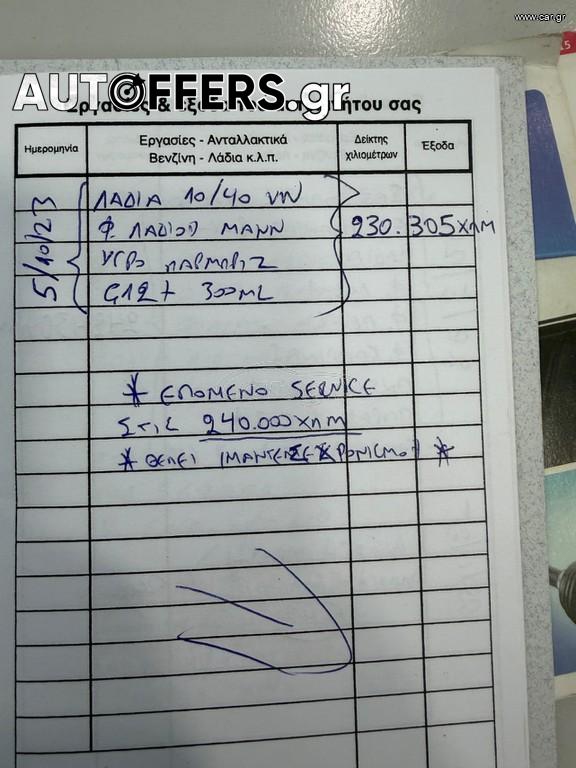 www.car.gr
AUTOFFERS.gr
Εργασίες & έξοδα του αυτοκινήτου σας
Ημερομηνία
Εργασίες - Ανταλλακτικά
Βενζίνη - Λάδια κ.λ.π.
Δείκτης
χιλιομέτρων
Έξοδα
5/10/23
ΛΑΔΙΑ 10/40 VW
Φ. ΛΑΔΙΟΥ MANN
230.305ΧΛΜ
ΥΓΡΟ ΠΑΡΜΠΡΙΖ
G12+ 300ML
* ΕΠΟΜΕΝΟ SERVICE
ΣΤΙΣ 240.000ΧΛΜ
* ΘΕΛΕΙ ΙΜΑΝΤΕΣ ΧΡΟΝΙΣΜΟΥ *